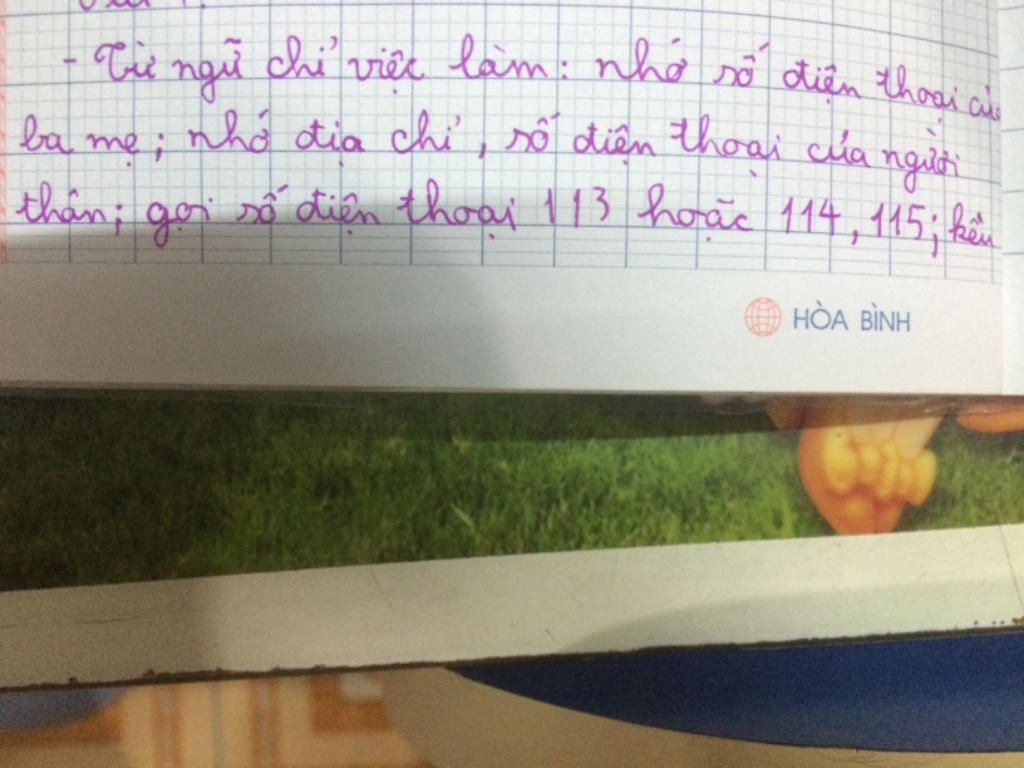 - Từ ngữ chỉ việc làm: nhớ số điện thoại của
ba mẹ; nhớ địa chỉ, số điện thoại của người
thân; gọi số điện thoại 113 hoặc 114, 115; kêu
HÒA BÌNH